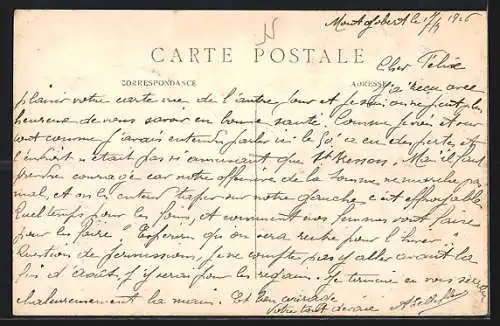 Montgobert le 17/7 1916
CARTE POSTALE
Cher Félix
CORRESPONDANCE
ADRESSE
J'ai reçu avec
plaisir votre carte vue de l'autre jour et je suis on ne peut plus
heureux de vous savoir en bonne santé. Comme je vois et sur
tout comme j'avais entendu parler ici le 50, a eu des pertes et
l'endroit n'était pas si amusant que St. Mais il faut
prendre courage car notre offensive de la Somme ne marche pas
mal, et on les entend taper sur notre gauche, c'est effroyable.
Quel temps pour les foins, et comment nos femmes vont faire
pour les faire. Espérons qu'on sera rentré pour l'hiver.
Question de permissions, je ne compte pas y aller avant la
fin d'août, j'y serai pour les regains. Je termine en vous serrant
chaleureusement la main. Et bon courage
Votre tout dévoué